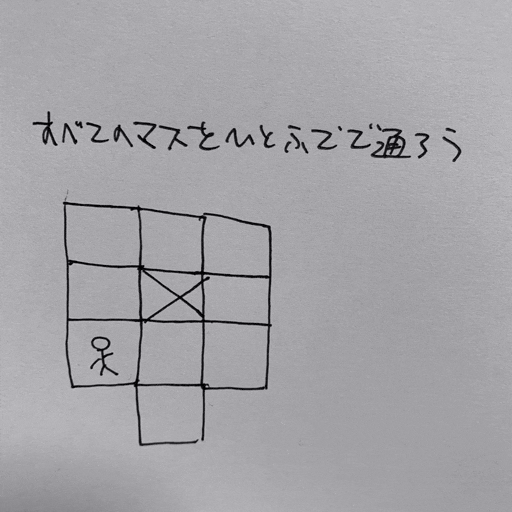 すべてのマスをひとふでで通ろう